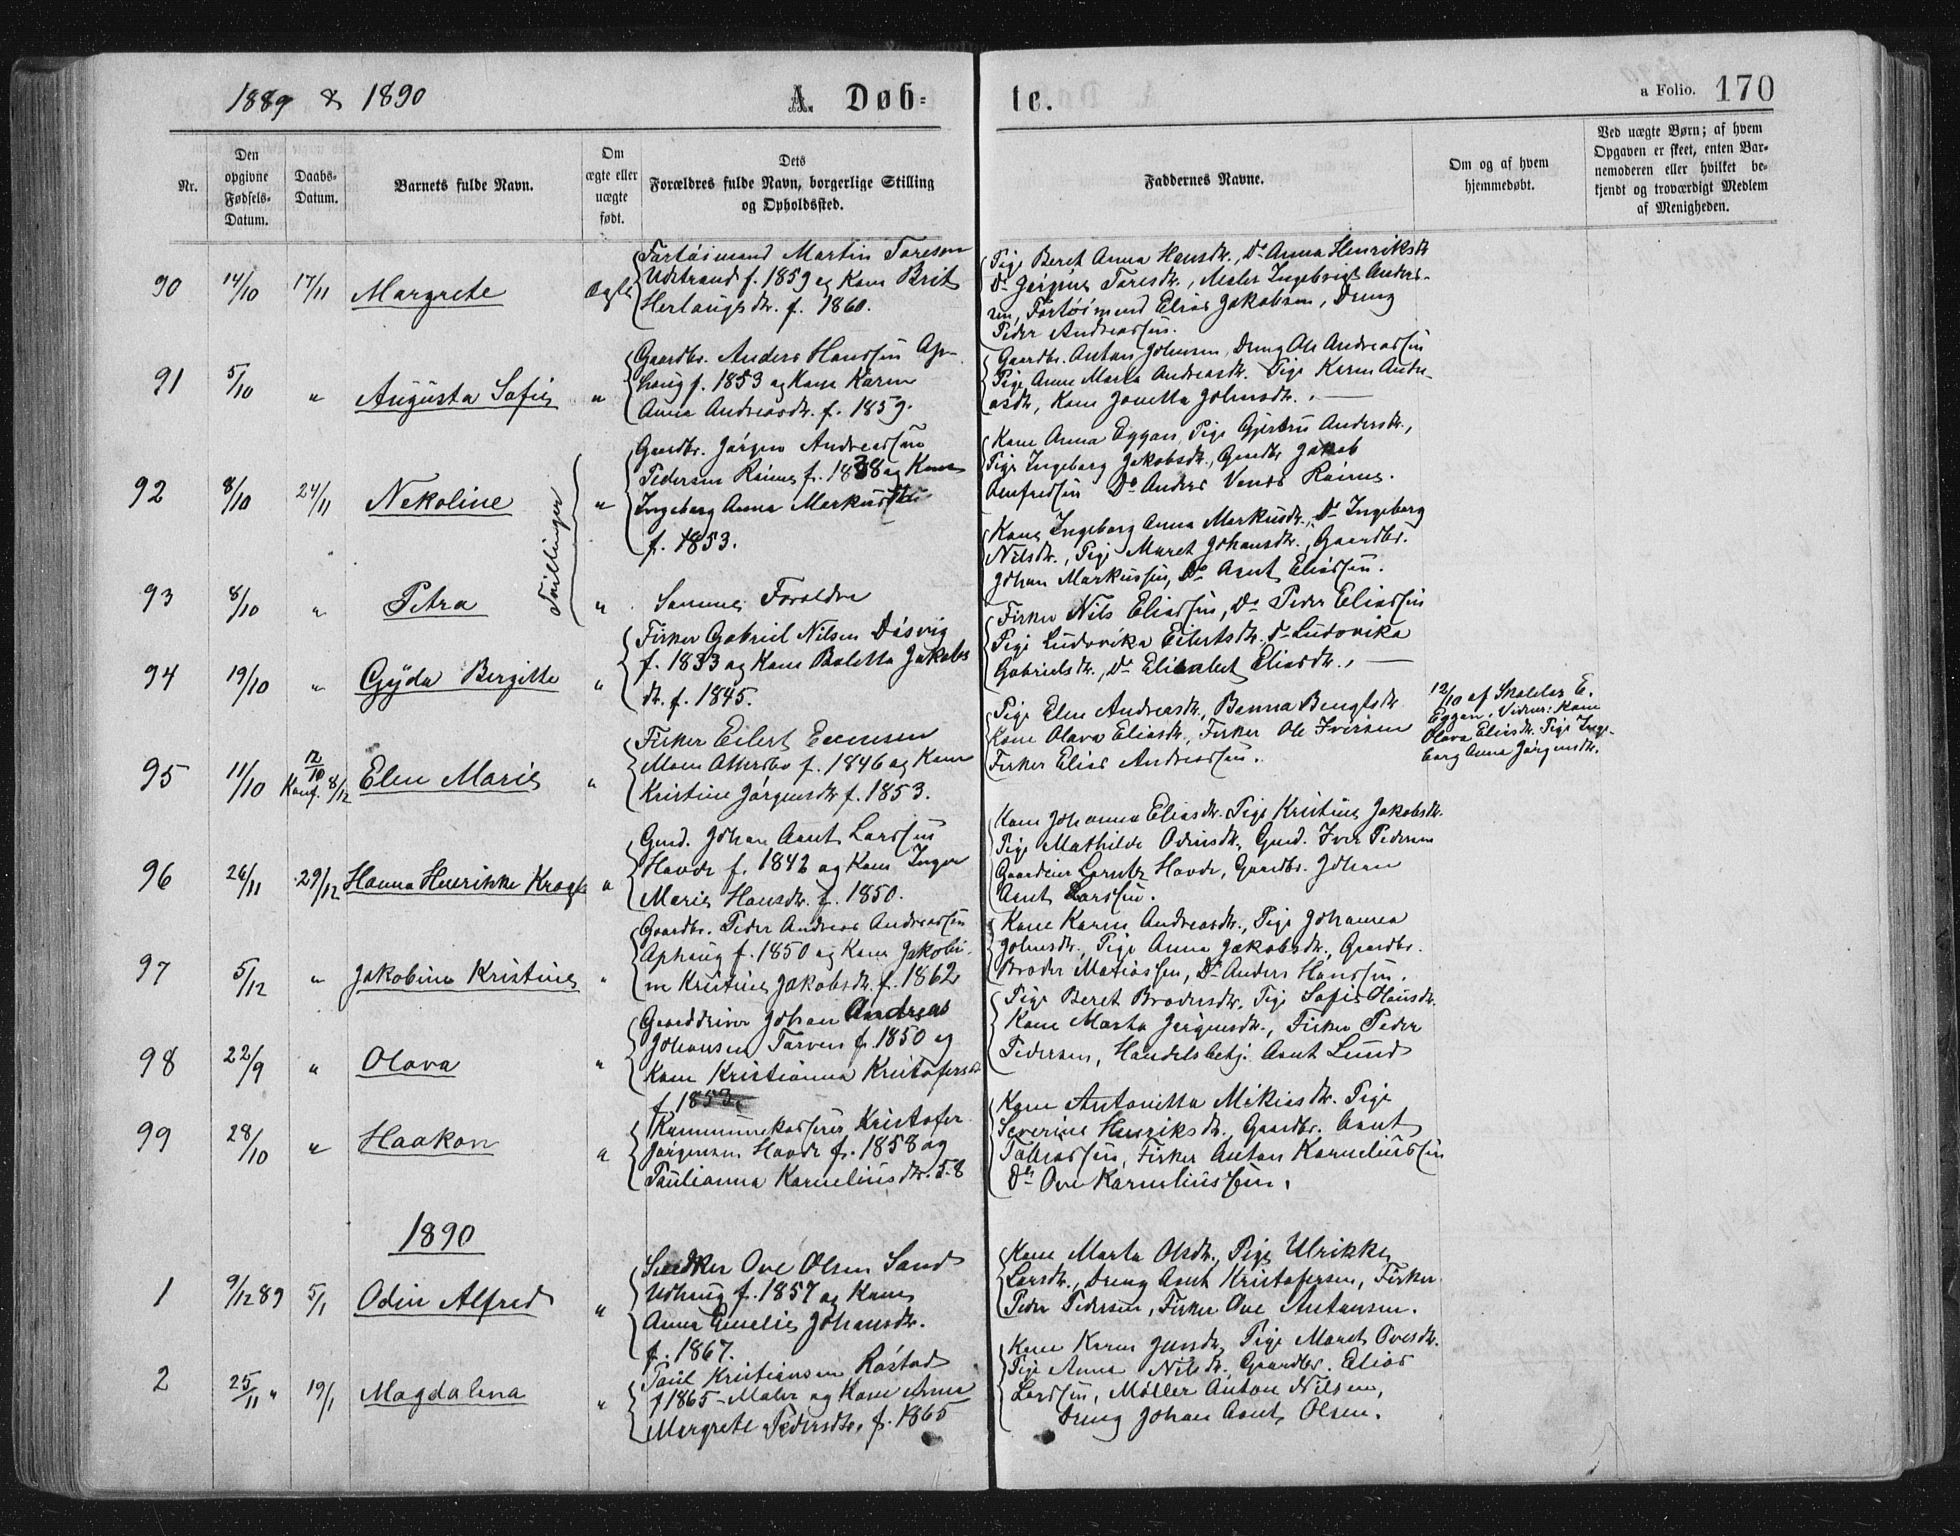 1889 & 1890
A. Døb=
te.
a Folio. 170
Nr.
Den
opgivne
Fødsels-
Datum.
Daabs-
Datum.
Barnets fulde Navn.
Om
ægte eller
uægte
født.
Dets
Forældres fulde Navn, borgerlige Stilling
og Opholdssted.
Faddernes Navne.
Om og af hvem
hjemmedøbt.
Ved uægte Børn; af hvem
Opgaven er skeet, enten Bar-
nemoderen eller hvilket be-
kjendt og troværdigt Medlem
af Menigheden.
90 14/10 17/11 Margrete Ægte
Fartøimand Martin Toresen
Udstrand f. 1859 og Kone Brit
Herlaugsdtr. f. 1860.
Pige Beret Anna Hansdtr., Do Anna Henriksdtr
Do Jørgine Toresdtr., Maler Ingebrigt Anders-
sen, Fartøimand Elias Jakobsen, Dreng
Peder Andreassen.
91 5/10 " Augusta Sofie "
Gaardbr. Anders Hanssen Op-
haug f. 1853 og Kone Karen
Anna Andreasdtr. f. 1859.
Gaardbr. Anton Johnsen, Dreng Ole Andreassen
Pige Anne Marta Andreasdtr. Pige Karen Andre-
asdtr, Kone Jonetta Johnsdtr.
92 8/10 24/11 Nekoline "
Tvillinger
Gaardbr. Jørgen Andreassen
Pedersen f. 1838 og Kone
Ingeborg Anna Markusdtr
f. 1853.
Kone Anna Eggan, Pige Gjertru Andersdtr.,
Pige Ingeborg Jakobsdtr., Gaardbr Jakob
Arnfredsen Do Anders
93 8/10 " Petra "
Samme Foreldre
Kone Ingeborg Anna Markusdtr., Do Ingeborg
Nilsdtr., Pige Maret Johansdtr., Gaardbr.
Johan Markussen, Do Arnt Eliassen.
94 19/10 " Gyda Bergitte "
Firker Gabriel Nilsen Døsvig
f. 1833 og Kone Baletta Jakobs
dtr. f. 1845.
Firker Nils Eliassen, Do Peder Eliassen
Pige Ludovika Eilertsdtr. Do Ludovika
Gabrielsdtr., Do Elisabet Eliasdtr.,
95 11/10 12/10 Konf. 8/12 Elen Marie "
Firker Eilert
f. 1846 og Kone
Kristine Jørgensdtr f. 1853.
Pige Elen Andreasdtr., Benna Bengtsdtr
Kone Olava Eliasdtr., Firker Ole Iversen
Firker Elias Andreassen.
12/10 af Skolelær E.
Eggan. Vidner: Kone
Olava Eliasdtr. Pige Inge-
borg Anna Jørgensdtr.
96 26/11 29/12 Hanna Henrikke Krogh "
Gmd. Johan Arnt Larssen
Hovde f. 1842 og Kone Inger
Marie Hansdtr. f. 1850.
Kone Johanna Eliasdtr. Pige Kristine Jakobsdtr.
Pige Mathilde Odinsdtr., Gmd. Iver Pedersen
Gaardeier Lorntz Hovde, Gaardbr. Johan
Arnt Larssen.
97 5/12 " Jakobine Kristine "
Gaardbr. Peder Andreas Andreassen
Ophaug f. 1850 og Kone Jakobi-
ne Kristine Jakobsdtr. f. 1862
Kone Karen Andreasdtr., Pige Johanna
Johnsdtr., Pige Anna Jakobsdtr., Gaardbr.
Broder Matiassen, Do Anders Hanssen.
98 22/9 " Olava "
Gaarddriver Johan Andreas
Johansen Tarven f. 1850 og
Kone Kristianna Kristofersdtr
f. 1853.
Pige Beret Brodersdtr, Pige Sofie Hansdtr.
Kone Marta Jørgensdtr., Firker Peder
Pedersen, Handelsbetj. Arnt Lund
99 28/10 " Haakon "
Kommunekasserer Kristofer
Jørgensen Hovde f. 1858 og
Paulianna Korneliusdtr. 58
Kone Antonetta Mikiasdtr. Pige
Severine Henriksdtr. Gaardbr. Arnt
Tobiassen, Firker Anton Korneliussen
Do Ove Korneliussen.
1890
1 9/12 89 5/1 Odin Alfred "
Snedker Ove Olsen Sand
Udhaug f. 1857 og Kone
Anna Emelie Johansdtr.
f. 1867.
Kone Marta Olsdtr., Pige Ulrikke
Larsdtr., Dreng Arnt Kristofersen, Firker
Peder Pedersen, Firker Ove Antonsen.
2 25/11 " 19/1 Magdalena "
Paul Kristiansen Røstad
f 1865 - Maler og Kone Anna
Margrete Pedersdtr. f. 1865
Kone Karen Jensdtr, Pige Maret Ovesdtr.
Pige Anna Nilsdtr, Gaardbr. Elias
Larssen, Møller Anton Nilsen,
Dreng Johan Arnt Olsen.